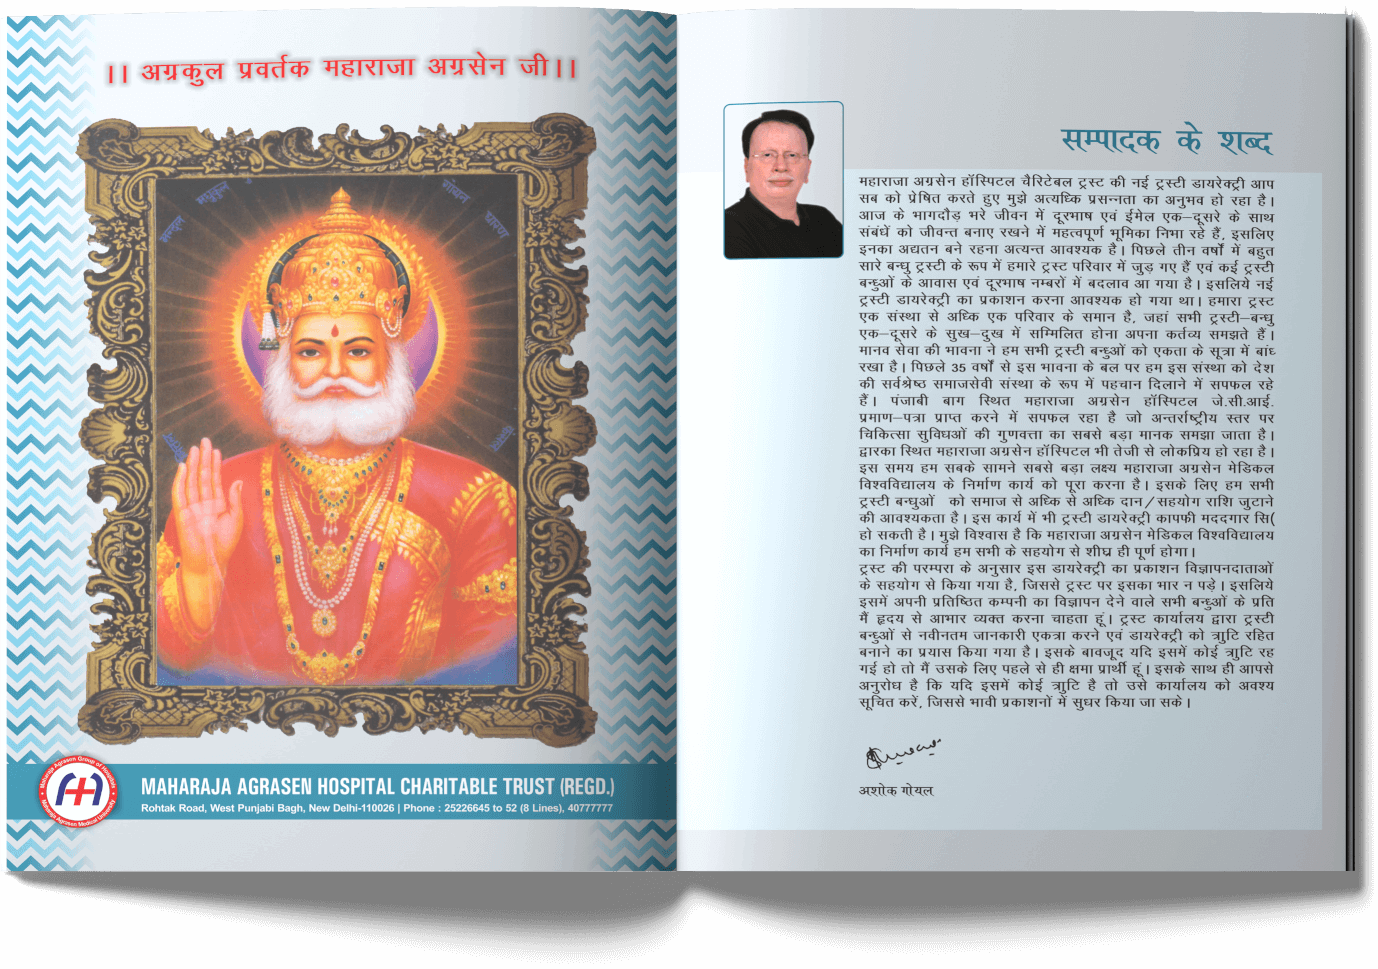 ।। अग्रकुल प्रवर्तक महाराजा अग्रसेन जी।।
MAHARAJA AGRASEN HOSPITAL CHARITABLE TRUST (REGD.)
Rohtak Road, West Punjabi Bagh, New Delhi-110026 | Phone : 25226645 to 52 (8 Lines), 40777777
Maharaja Agrasen Group of Hospitals
Maharaja Agrasen Medical University
सम्पादक के शब्द
महाराजा अग्रसेन हॉस्पिटल चैरिटेबल ट्रस्ट की नई ट्रस्टी डायरेक्ट्री आप
सब को प्रेषित करते हुए मुझे अत्यध्कि प्रसन्नता का अनुभव हो रहा है।
आज के भागदौड़ भरे जीवन में दूरभाष एवं ईमेल एक–दूसरे के साथ
संबंधें को जीवन्त बनाए रखने में महत्वपूर्ण भूमिका निभा रहे हैं, इसलिए
इनका अद्यतन बने रहना अत्यन्त आवश्यक है। पिछले तीन वर्षों में बहुत
सारे बन्धु ट्रस्टी के रूप में हमारे ट्रस्ट परिवार में जुड़ गए हैं एवं कई ट्रस्टी
बन्धुओं के आवास एवं दूरभाष नम्बरों में बदलाव आ गया है। इसलिये नई
ट्रस्टी डायरेक्ट्री का प्रकाशन करना आवश्यक हो गया था। हमारा ट्रस्ट
एक संस्था से अध्कि एक परिवार के समान है, जहां सभी ट्रस्टी–बन्धु
एक–दूसरे के सुख–दुख में सम्मिलित होना अपना कर्तव्य समझते हैं।
मानव सेवा की भावना ने हम सभी ट्रस्टी बन्धुओं को एकता के सूत्रा में बांध्
रखा है। पिछले 35 वर्षों से इस भावना के बल पर हम इस संस्था को देश
की सर्वश्रेष्ठ समाजसेवी संस्था के रूप में पहचान दिलाने में सपफल रहे
हैं। पंजाबी बाग स्थित महाराजा अग्रसेन हॉस्पिटल जे.सी.आई.
प्रमाण–पत्रा प्राप्त करने में सपफल रहा है जो अन्तर्राष्ट्रीय स्तर पर
चिकित्सा सुविधओं की गुणवत्ता का सबसे बड़ा मानक समझा जाता है।
द्वारका स्थित महाराजा अग्रसेन हॉस्पिटल भी तेजी से लोकप्रिय हो रहा है।
इस समय हम सबके सामने सबसे बड़ा लक्ष्य महाराजा अग्रसेन मेडिकल
विश्वविद्यालय के निर्माण कार्य को पूरा करना है। इसके लिए हम सभी
ट्रस्टी बन्धुओं को समाज से अध्कि से अध्कि दान/सहयोग राशि जुटाने
की आवश्यकता है। इस कार्य में भी ट्रस्टी डायरेक्ट्री कापफी मददगार सि(
हो सकती है। मुझे विश्वास है कि महाराजा अग्रसेन मेडिकल विश्वविद्यालय
का निर्माण कार्य हम सभी के सहयोग से शीघ्र ही पूर्ण होगा।
ट्रस्ट की परम्परा के अनुसार इस डायरेक्ट्री का प्रकाशन विज्ञापनदाताओं
के सहयोग से किया गया है, जिससे ट्रस्ट पर इसका भार न पड़े। इसलिये
इसमें अपनी प्रतिष्ठित कम्पनी का विज्ञापन देने वाले सभी बन्धुओं के प्रति
मैं हृदय से आभार व्यक्त करना चाहता हूं। ट्रस्ट कार्यालय द्वारा ट्रस्टी
बन्धुओं से नवीनतम जानकारी एकत्रा करने एवं डायरेक्ट्री को त्राुटि रहित
बनाने का प्रयास किया गया है। इसके बावजूद यदि इसमें कोई त्राुटि रह
गई हो तो मैं उसके लिए पहले से ही क्षमा प्रार्थी हूं। इसके साथ ही आपसे
अनुरोध है कि यदि इसमें कोई त्राुटि है तो उसे कार्यालय को अवश्य
सूचित करें, जिससे भावी प्रकाशनों में सुधर किया जा सके।
अशोक गोयल